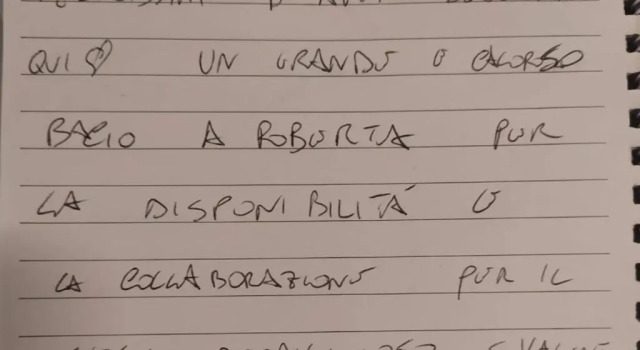 QUI♡ UN GRANDE E CALOROSO
BACIO A ROBERTA PER
LA DISPONIBILITÀ E
LA COLLABORAZIONE PER IL